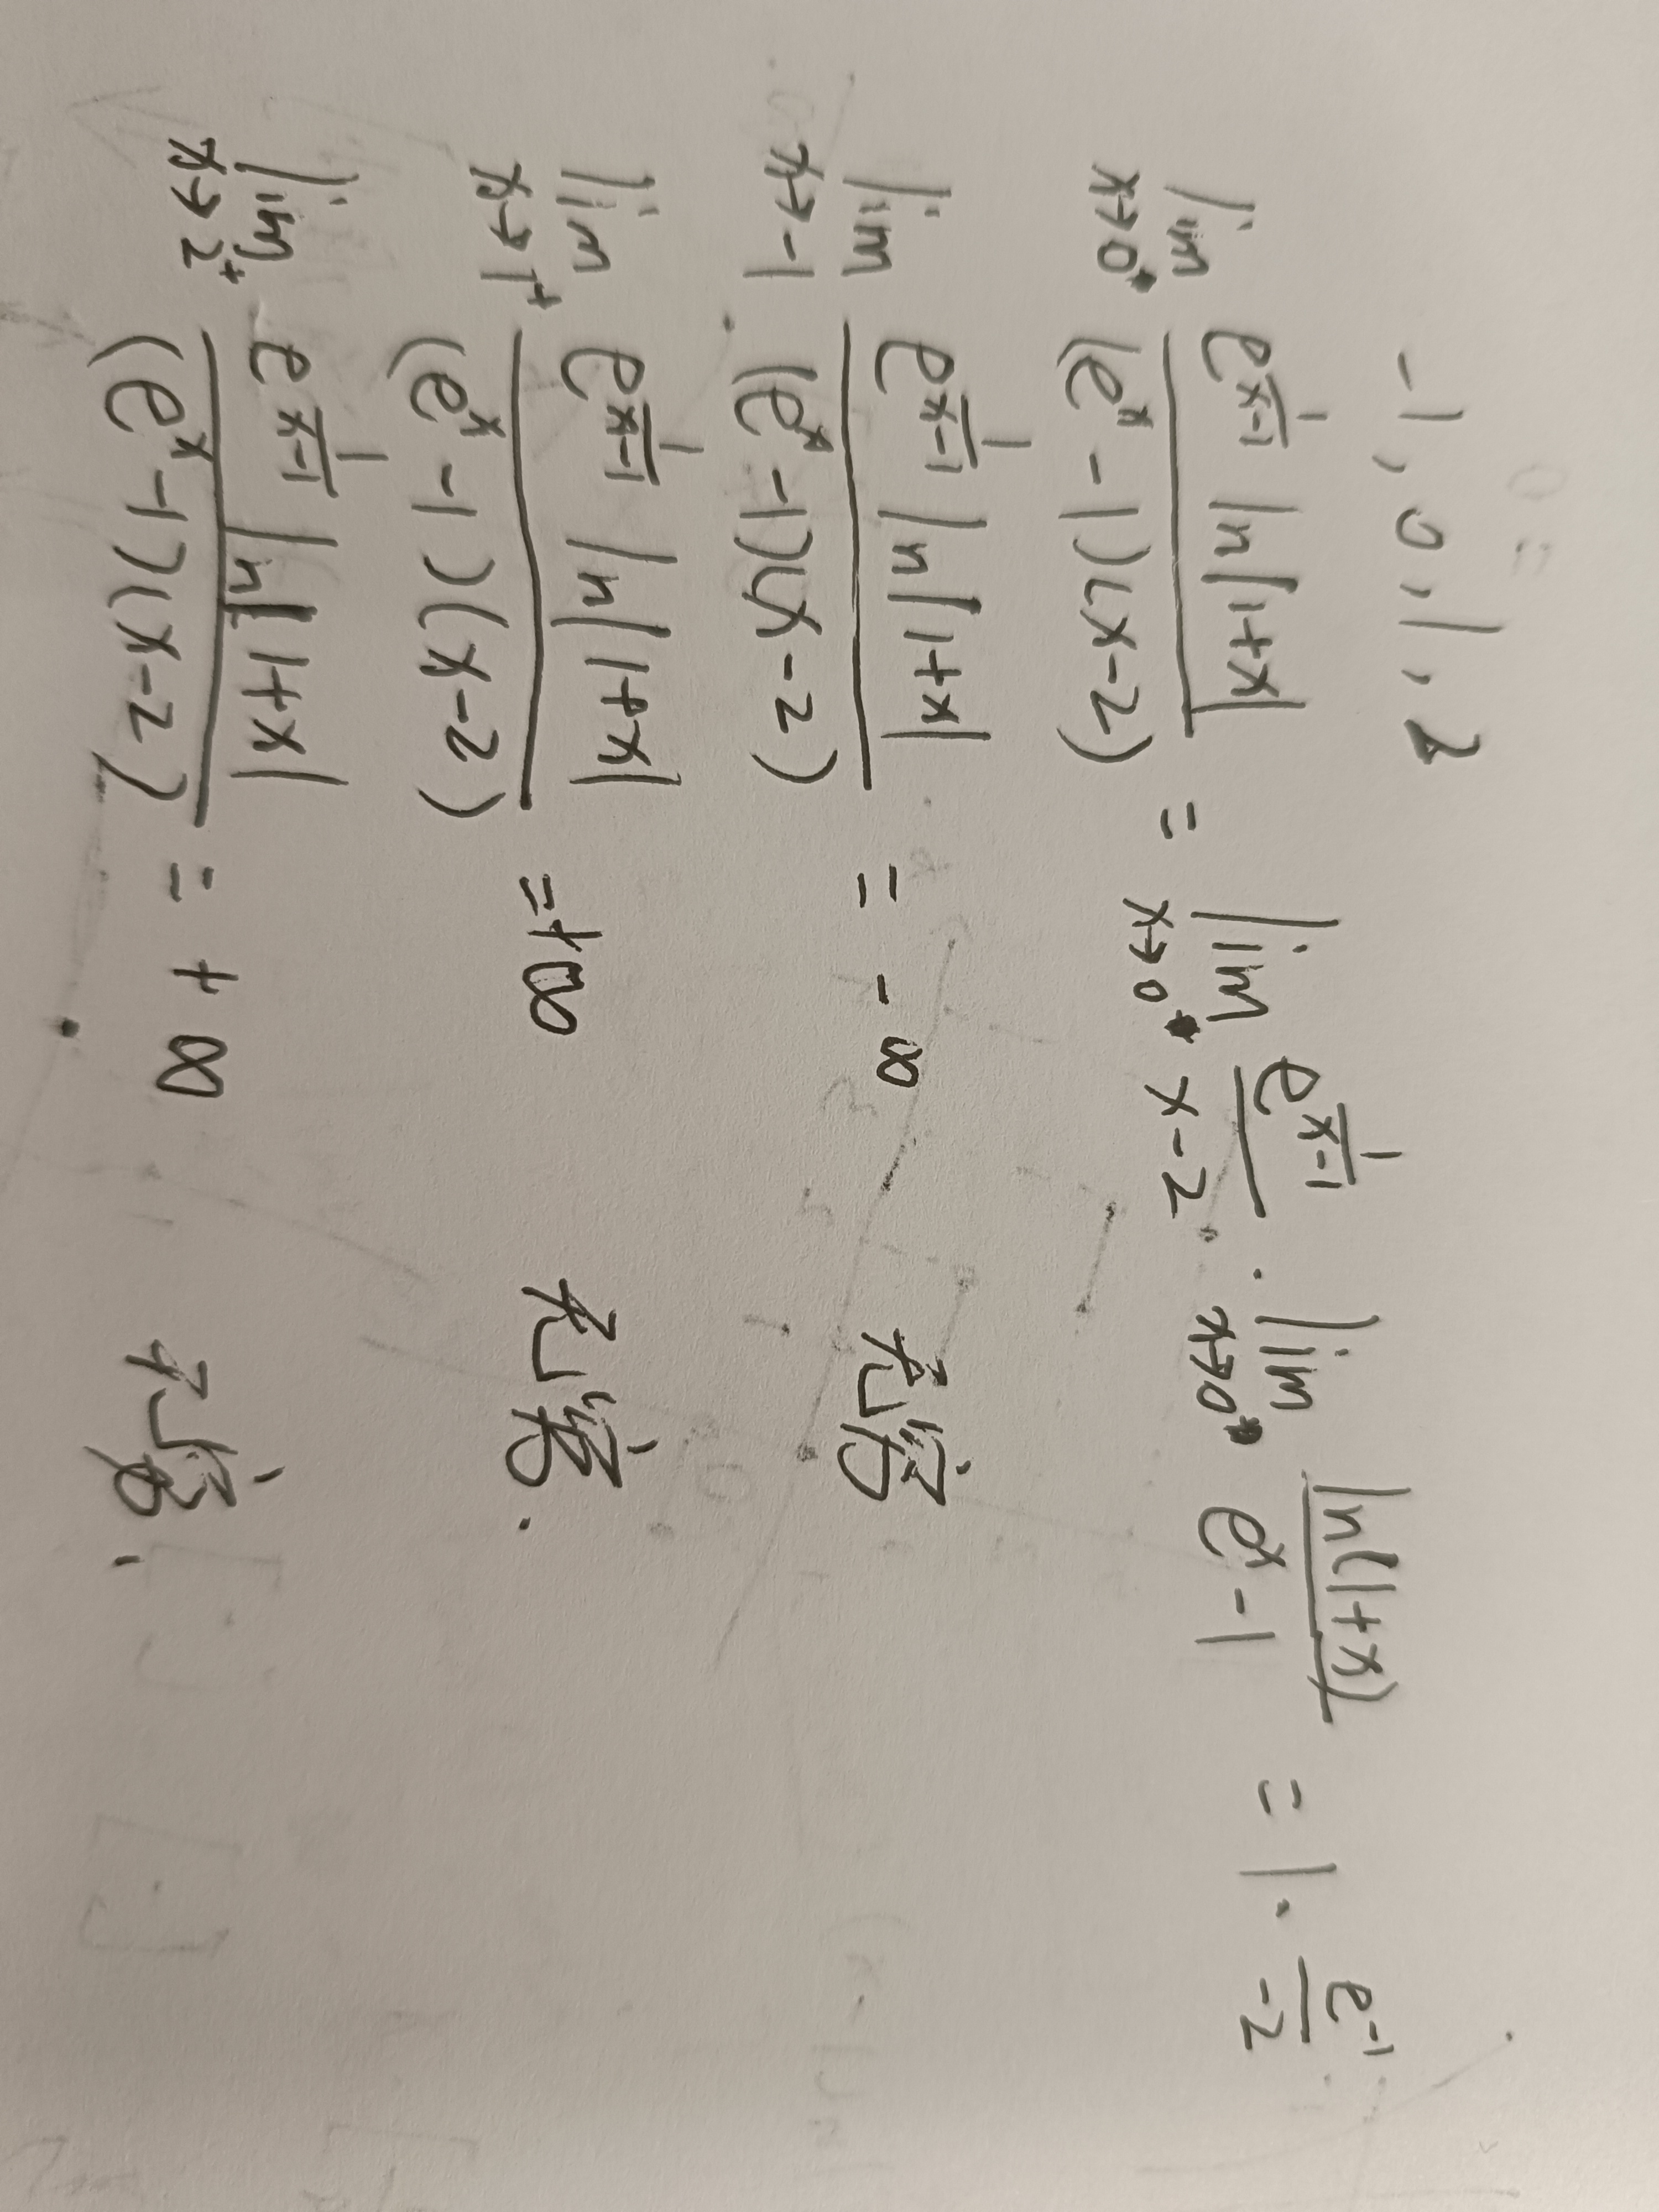 -1, 0, 1, 2
lim x→0 e^(1/(x-1)) ln|1+x| / (e^x -1)(x-2) = lim x→0 e^(1/(x-1)) / x-2 · lim x→0 ln(1+x) / e^x -1 = 1 · e^-1 / -2
lim x→-1 e^(1/(x-1)) ln|1+x| / (e^x -1)(x-2) = -∞ 无穷
lim x→1+ e^(1/(x-1)) ln|1+x| / (e^x -1)(x-2) = +∞ 无穷.
lim x→2+ e^(1/(x-1)) ln|1+x| / (e^x -1)(x-2) = +∞ 无穷.